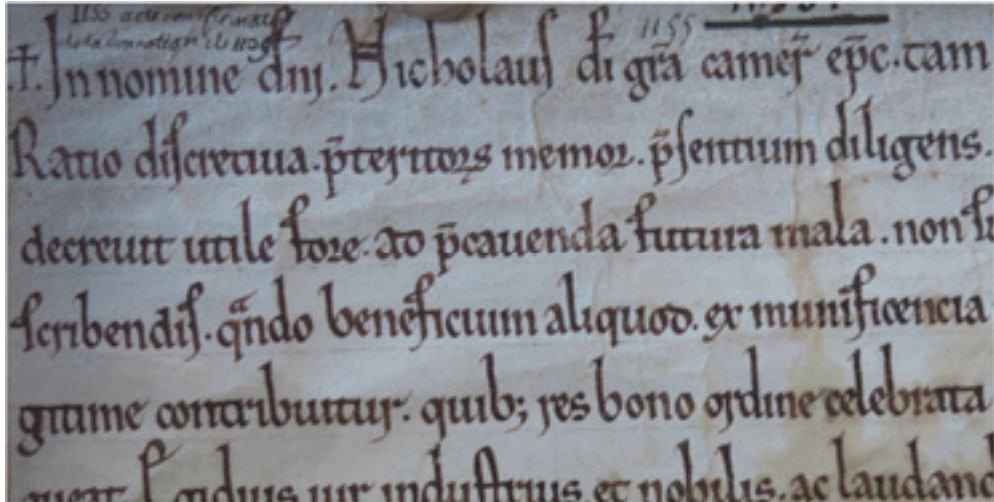 1155 acte confirmatif
de la donation de 1139
1155
✝. In nomine dnj. Nicholauſ di grã camer̄ ep̄c. tam
Ratio diſcretiua. p̄teritoꝝ memoꝛ. p̄ſentium diligens.
decreuit utile foꝛe. ad p̄cauenda futura mala. non
ſcribendiſ. qͣndo beneficium aliquod. ex munificencia
gitime contribuitur. quib; res bono ordine celebrata
uir induſtrius. et nobilis. ac laudand